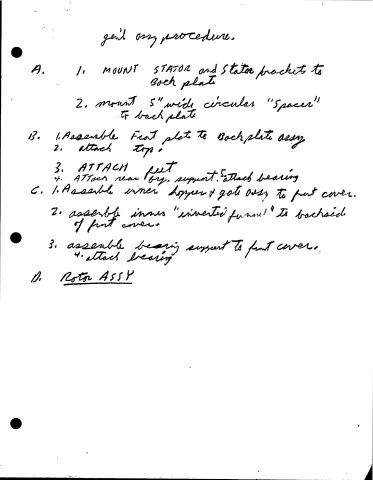 gen'l assy procedure.
A. 1. MOUNT STATOR and Stator brackets to
Back plate
2. mount 5" wide circular "Spacer"
to back plate
B. 1. Assemble Feat plate to Back plate assy
2. attach top.
3. ATTACH feet
4. ATTACH rear brg. support. 5. attach bearing
C. 1. Assemble inner hopper & gate assy to frnt cover.
2. assemble inner "inverted funnel" to backside
of frnt cover.
3. assemble bearing support to frnt cover.
4. attach bearing
D. Rotor ASSY